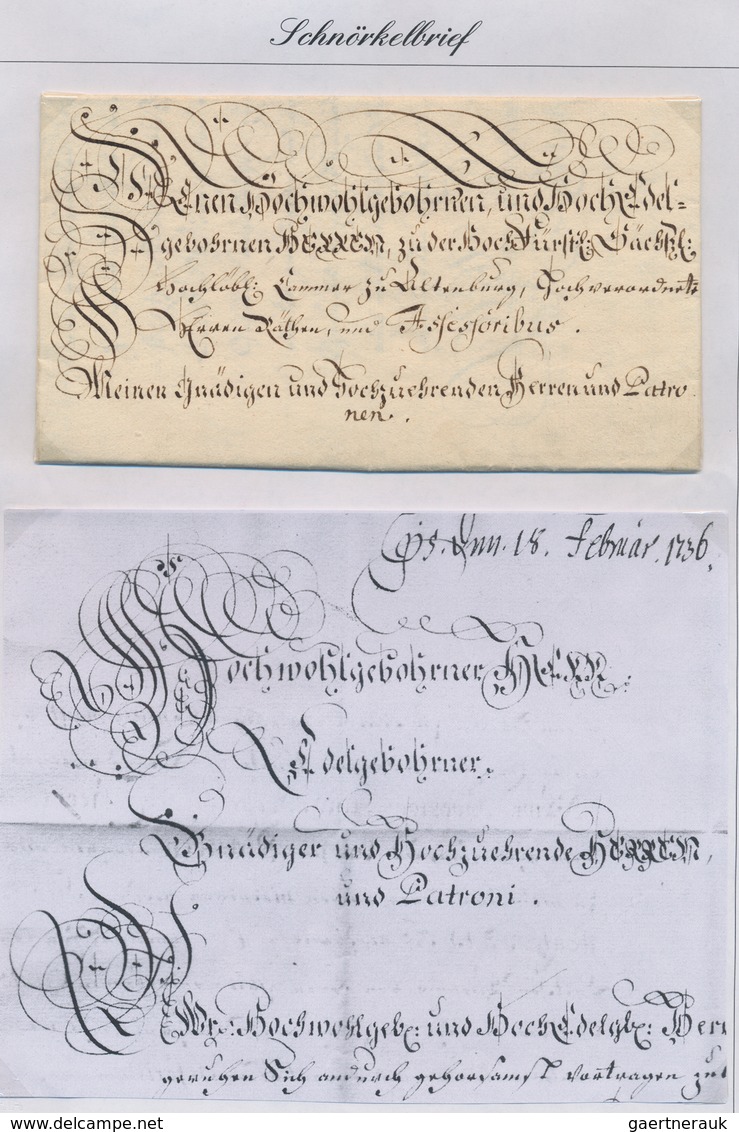 Schnörkelbrief
Denen Hochwohlgebohrnen, und HochEdel=
gebohrnen HERREN, zu der HochFürstl: Sächßl:
Hochlöbl: Cammer zu Altenburg, Hochverordnete
Herren Räthen, und Assessoribus.
Meinen Gnädigen und Hochzuehrenden Herren und Patro
nen.
18. Februar. 1736.
Hochwohlgebohrner HERR.
Edelgebohrner.
Gnädiger und Hochzuehrende HERREN,
und Patroni.
EWr: Hochwohlgeb: und HochEdelgb: Herr
geruhen Sich andurch gehorsamst vortragen zu
gaertnerauk